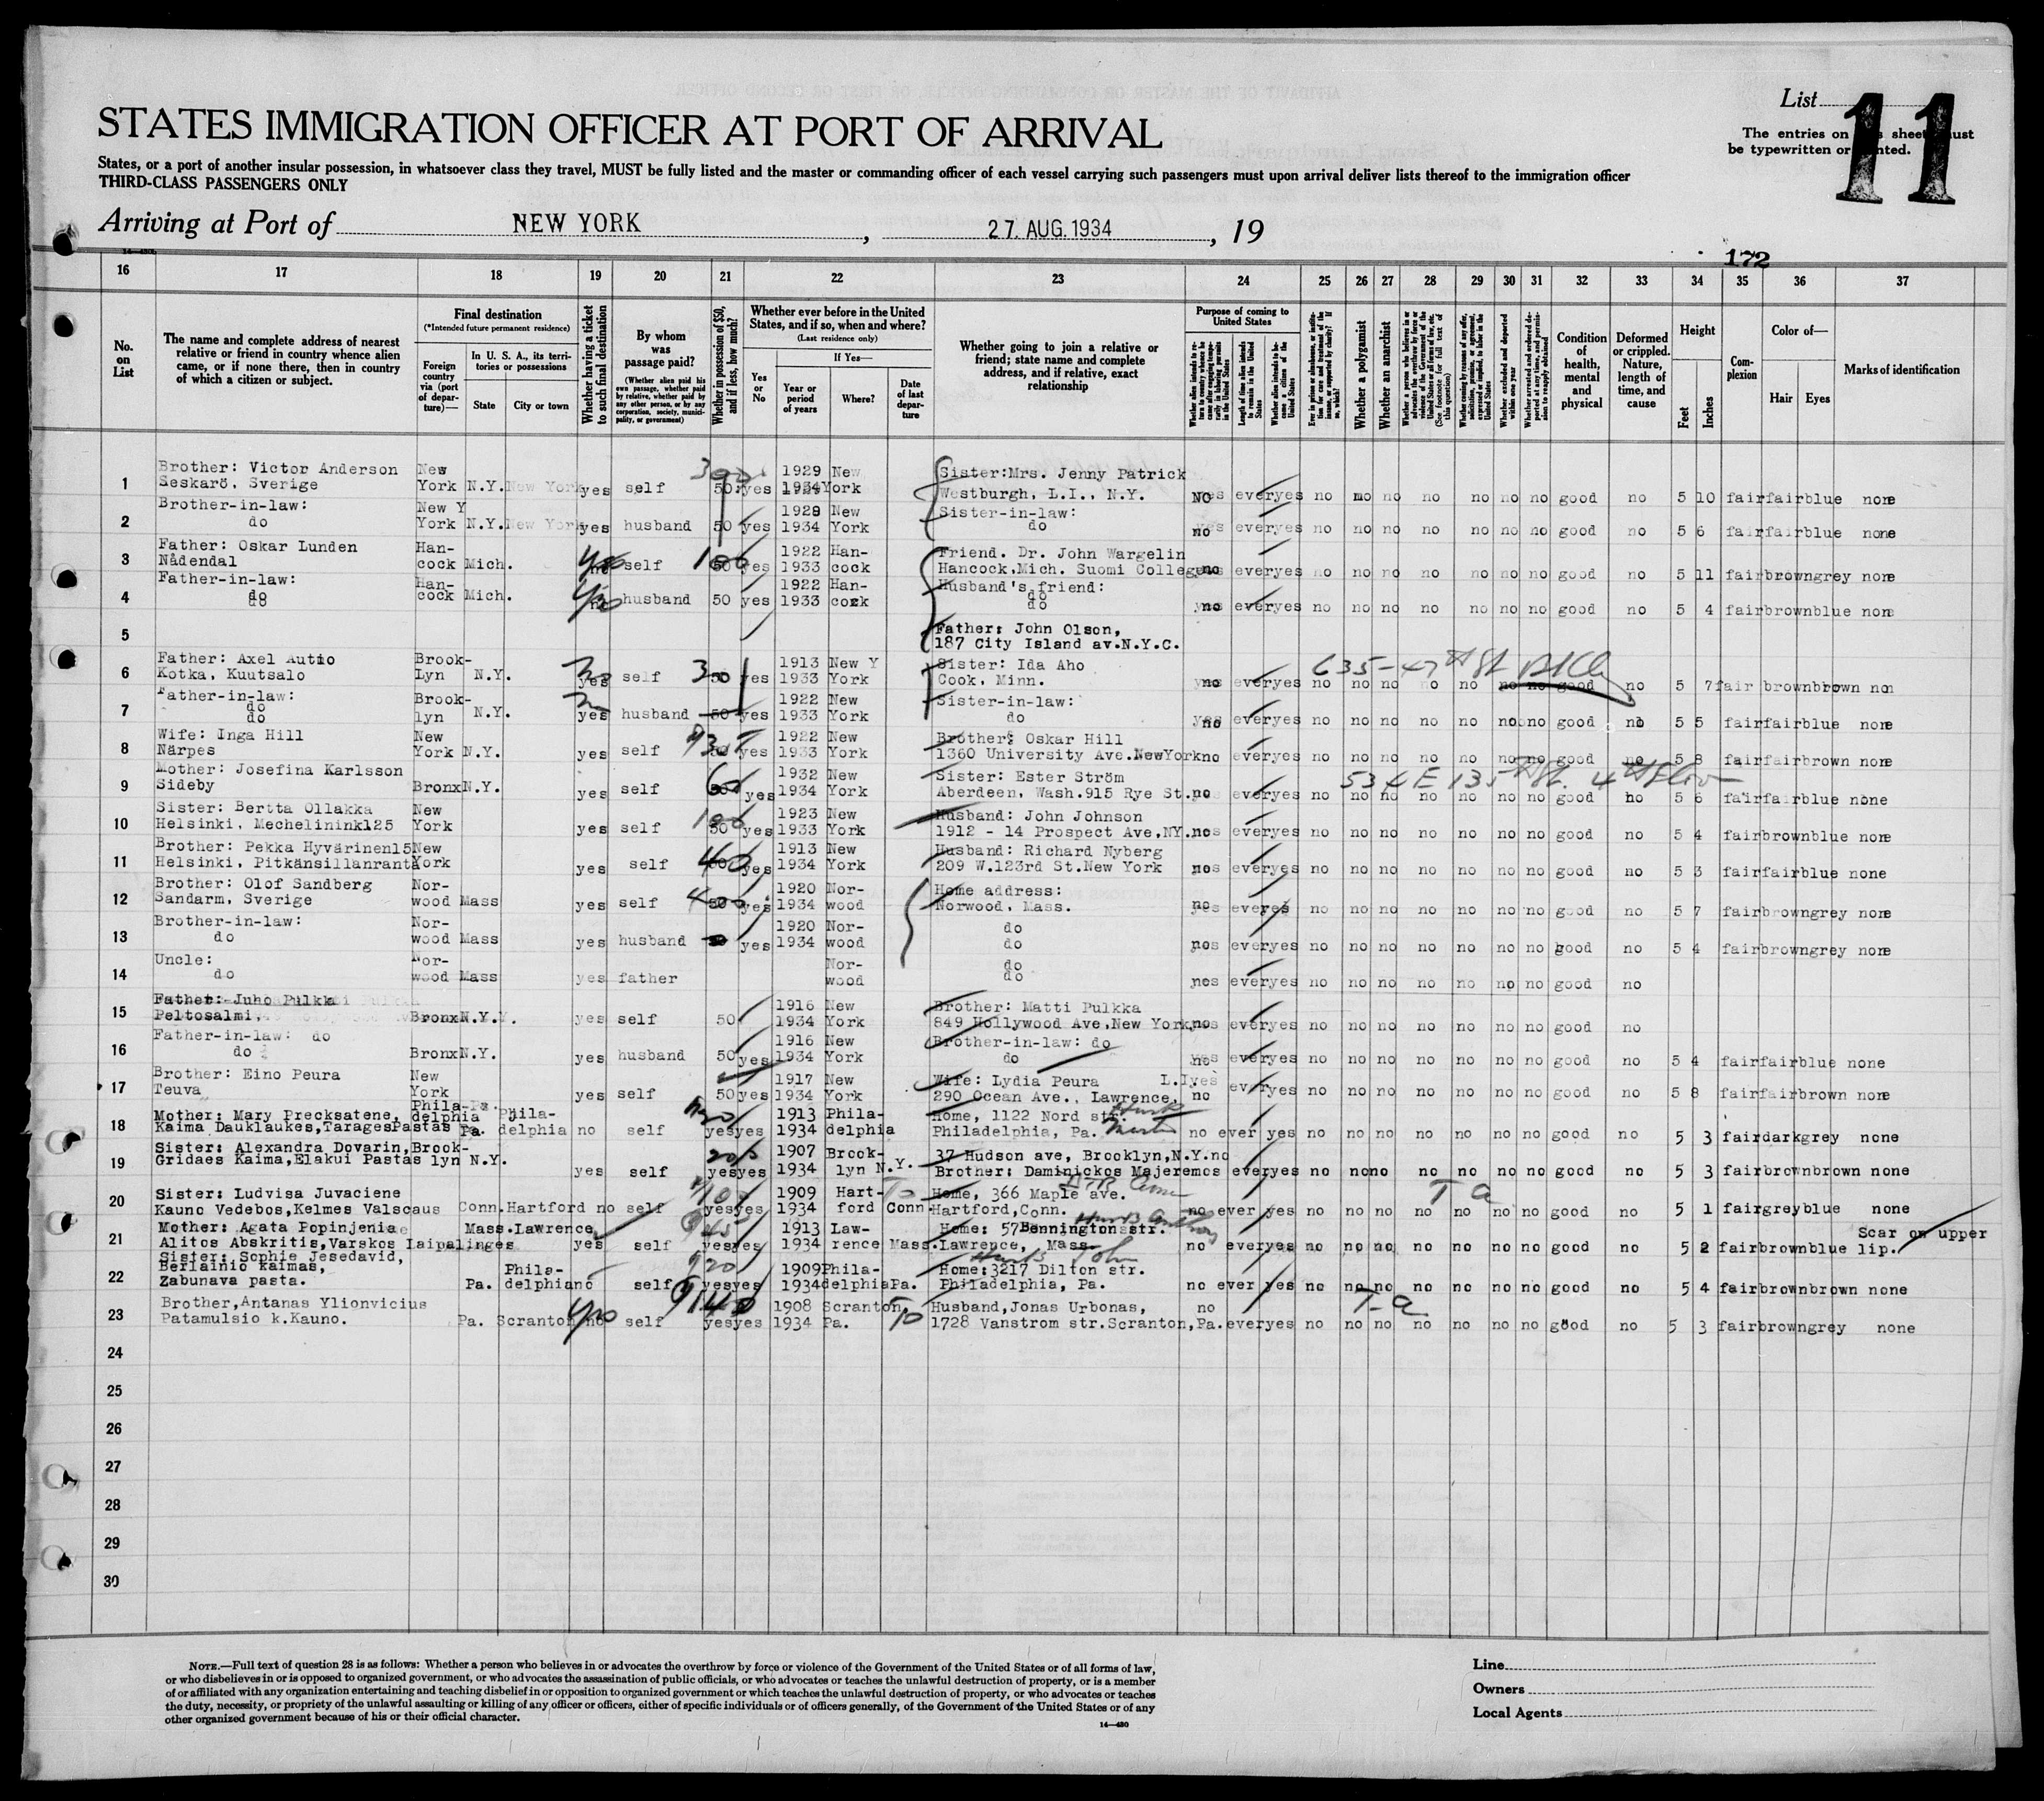 List 11
STATES IMMIGRATION OFFICER AT PORT OF ARRIVAL
The entries on sheet must
be typewritten or printed.
States, or a port of another insular possession, in whatsoever class they travel, MUST be fully listed and the master or commanding officer of each vessel carrying such passengers must upon arrival deliver lists thereof to the immigration officer
THIRD-CLASS PASSENGERS ONLY
Arriving at Port of NEW YORK, 27. AUG. 1934, 19
172
16 17 18 19 20 21 22 23 24 25 26 27 28 29 30 31 32 33 34 35 36 37
No. on List
The name and complete address of nearest relative or friend in country whence alien came, or if none there, then in country of which a citizen or subject.
Final destination
(*Intended future permanent residence)
Foreign country via (port of departure)—
In U. S. A., its territories or possessions
State
City or town
Whether having a ticket to such final destination
By whom was passage paid?
(Whether alien paid his own passage, whether paid by relative, whether paid by any other person, or by any corporation, society, municipality, or government)
Whether in possession of $50, and if less, how much?
Whether ever before in the United States, and if so, when and where?
(Last residence only)
Yes or No
If Yes—
Year or period of years
Where?
Date of last departure
Whether going to join a relative or friend; state name and complete address, and if relative, exact relationship
Purpose of coming to United States
Whether a polygamist
Whether an anarchist
Condition of health, mental and physical
Deformed or crippled. Nature, length of time, and cause
Height
Feet
Inches
Complexion
Color of—
Hair
Eyes
Marks of identification
1 Brother: Victor Anderson New 1929 New Sister:Mrs. Jenny Patrick
Seskarö, Sverige York N.Y. New York yes self 50 yes 1934 York Westburgh, L.I., N.Y. no ever yes no no no no no no no good no 5 10 fair fair blue none
2 Brother-in-law: New Y 1929 New Sister-in-law:
do York N.Y. New York yes husband 50 yes 1934 York do no ever yes no no no no no no no good no 5 6 fair fair blue none
3 Father: Oskar Lunden Han- 1922 Han- Friend. Dr. John Wargelin
Nådendal cock Mich. yes self 100 yes 1933 cock Hancock.Mich. Suomi College no ever yes no no no no no no no good no 5 11 fair brown grey none
4 Father-in-law: Han- 1922 Han- Husband's friend:
do cock Mich. yes husband 50 yes 1933 cock do no ever yes no no no no no no no good no 5 4 fair brown blue none
5 Father: John Olson,
187 City Island av.N.Y.C.
6 Father: Axel Autio Brook- 1913 New Y Sister: Ida Aho 635-47th St Bklyn
Kotka, Kuutsalo Lyn N.Y. yes self 50 yes 1933 York Cook, Minn. no ever yes no no no no no no no good no 5 7 fair brown brown non
7 Father-in-law: Brook- 1922 New Sister-in-law:
do lyn N.Y. yes husband 50 yes 1933 York do no ever yes no no no no no no no good no 5 5 fair fair blue none
8 Wife: Inga Hill New 1922 New Brother: Oskar Hill
Närpes York N.Y. yes self yes 1933 York 1360 University Ave.NewYork no ever yes no no no no no no no good no 5 8 fair fair brown none
9 Mother: Josefina Karlsson 1932 New Sister: Ester Ström 534 E 135th St.
Sideby Bronx N.Y. yes self 60 yes 1934 York Aberdeen, Wash.915 Rye St. no ever yes no no no no no no no good no 5 6 fair fair blue none
10 Sister: Bertta Ollakka New 1923 New Husband: John Johnson
Helsinki, Mechelinink125 York yes self 100 50 yes 1933 York 1912 - 14 Prospect Ave,NY. no ever yes no no no no no no no good no 5 4 fair brown blue none
11 Brother: Pekka Hyvärinen15 New 1913 New Husband: Richard Nyberg
Helsinki, Pitkänsillanranta York yes self 40 yes 1934 York 209 W.123rd St.New York no ever yes no no no no no no no good no 5 3 fair fair blue none
12 Brother: Olof Sandberg Nor- 1920 Nor- Home address:
Sandarm, Sverige wood Mass yes self 400 yes 1934 wood Norwood, Mass. no ever yes no no no no no no no good no 5 7 fair brown grey none
13 Brother-in-law: Nor- 1920 Nor- do
do wood Mass yes husband 50 yes 1934 wood do no ever yes no no no no no no no good no 5 4 fair brown grey none
14 Uncle: Nor- Nor- do
do wood Mass yes father wood do no ever yes no no no no no no no good no
15 Father: Juho Pulkka 1916 New Brother: Matti Pulkka
Peltosalmi, Bronx N.Y. yes self 50 1934 York 849 Hollywood Ave,New York, no ever yes no no no no no no no good no
16 Father-in-law: do 1916 New Brother-in-law: do
do Bronx N.Y. yes husband 50 yes 1934 York do no ever yes no no no no no no no good no 5 4 fair fair blue none
17 Brother: Eino Peura New 1917 New Wife: Lydia Peura L.I
Teuva York yes self 50 yes 1934 York 290 Ocean Ave., Lawrence, no ever yes no no no no no no no good no 5 8 fair fair brown none
18 Mother: Mary Precksatene, Philadelphia Phila- 1913 Phila- Home, 1122 Nord str.
Kaima Dauklaukes,TaragesPastas Pa. delphia no self yes yes 1934 delphia Philadelphia, Pa. no ever yes no no no no no no no good no 5 3 fair dark grey none
19 Sister: Alexandra Dovarin, Brook- 1907 Brook- 37 Hudson ave, Brooklyn,N.Y. no
Gridaes Kaima,Elakui Pastas lyn N.Y. yes self yes yes 1934 lyn N.Y. Brother: Daminickos Majeremos ever yes no no no no no no no good no 5 3 fair brown brown none
20 Sister: Ludvisa Juvaciene 1909 Hart- To Home, 366 Maple ave. T a
Kauno Vedebos,Kelmes Valscaus Conn. Hartford no self yes yes 1934 ford Conn Hartford,Conn. no ever yes no no no no no no no good no 5 1 fair grey blue none
21 Mother: Agata Popinjenia Mass. Lawrence 45 1913 Law- Home: 57 Bennington str. Scar on upper
Alitos Abskritis,Varskos Laipalinges yes self yes yes 1934 rence Mass. Lawrence, Mass. no ever yes no no no no no no no good no 5 2 fair brown blue lip.
22 Sister: Sophie Jesedavid, Phila- 20 1909 Phila- Home: 3217 Dilton str.
Berlainio kaimas,
Zabunava pasta. Pa. delphia no self yes yes 1934 delphia Pa. Philadelphia, Pa. no ever yes no no no no no no no good no 5 4 fair brown brown none
23 Brother,Antanas Ylionvicius 1908 Scranton, To Husband,Jonas Urbonas, no T-a
Patamulsio k.Kauno. Pa. Scranton no self yes yes 1934 Pa. 1728 Vanstrom str.Scranton,Pa. ever yes no no no no no no no good no 5 3 fair brown grey none
24
25
26
27
28
29
30
NOTE.—Full text of question 28 is as follows: Whether a person who believes in or advocates the overthrow by force or violence of the Government of the United States or of all forms of law,
or who disbelieves in or is opposed to organized government, or who advocates the assassination of public officials, or who advocates or teaches the unlawful destruction of property, or is a member
of or affiliated with any organization entertaining and teaching disbelief in or opposition to organized government or which teaches the unlawful destruction of property, or who advocates or teaches
the duty, necessity, or propriety of the unlawful assaulting or killing of any officer or officers, either of specific individuals or of officers generally, of the Government of the United States or of any
other organized government because of his or their official character.
14—430
Line
Owners
Local Agents